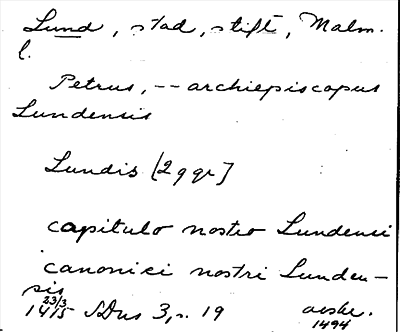 Lund, stad, stift, Malm.
l.
Petrus, -- archiepiscopus
Lundensis
Lundis [2 ggr]
capitulo nostro Lundensi
canonici nostri Lunden-
sis
23/3
1415 SDns 3, s. 19 avskr.
1494